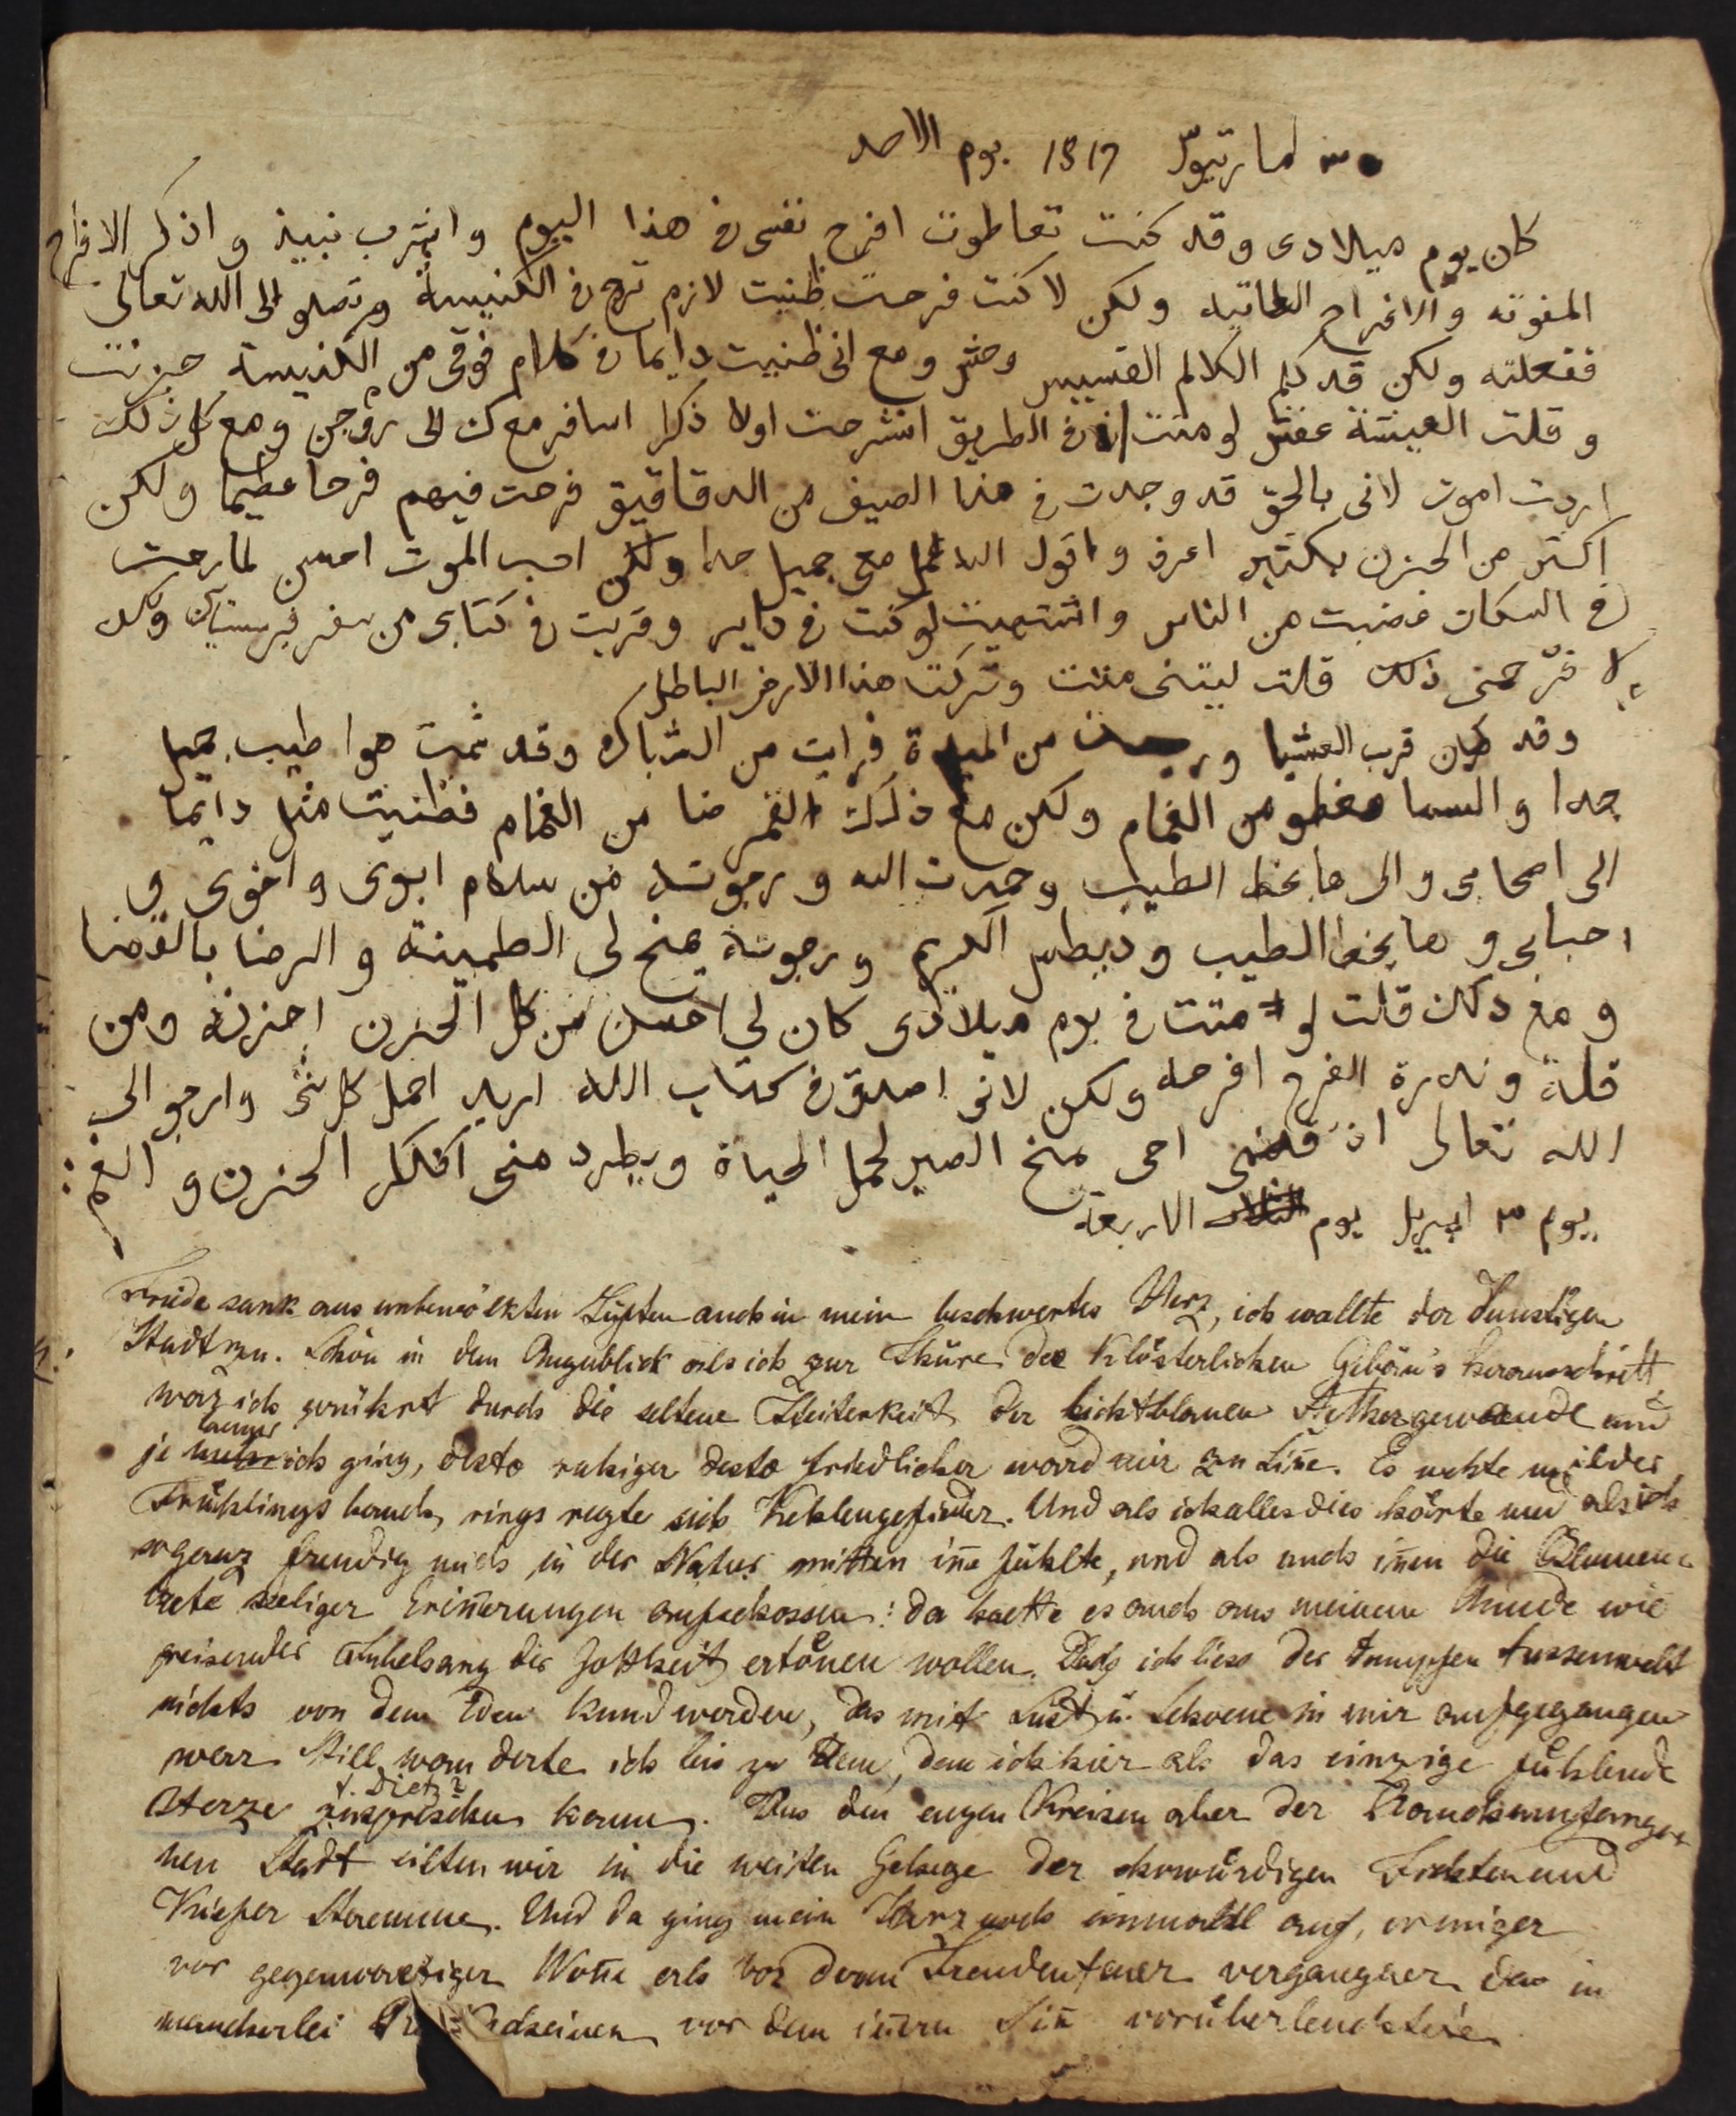 ٣٠ لمارتيوس 1819 يوم الاحد
كان يوم ميلادى وقد كنت تعاطوت افرح نفسى فى هذا اليوم واشرب نبيذ واذكر الافراح
المفوته والافراح الطاتيه ولكن لا كنت فرحت ظنيت لازم ترح فى الكنيسة وتصلو الى الله تعالى
ففعلته ولكن قد كلم الكلام القسيس وحش ومع انى ظنيت دايما فى كلام فوقى من الكنيسة حزنت
وقلت العيشة عفش لو متت فى الطريق انشرحت اولا ذكرا اسافر معك الى ومع كل ذلك
اردت اموت لانى بالحق قد وجدت فى هذا الصيف من الدقاقيق فرحت فيهم فرحا عظيما ولكن
اكتر من الحزن بكتير اعرف واقول الله عمل مع جميل جدا ولكن احب الموت احسن لما رحت
فى السكات فضبت من الناس واشتهيت لو كنت فى داير وقريت فى كتابى من سفر ولكن
لا فرّحنى ذلك قلت ليتنى متت وتركت هذا الارض الباطل
وقد كان قرب العشيا من فرايت من الشباك وقد شميت هوا طيب جميل
جدا والسما مغطو من الغمام ولكن مع ذلك القمر ضا من الغمام فظنيت مثل دايما
الى اصحابى والى هاينخط الطيب وحمدت الله ورجوته من سلام ابوى واخوى و
احبابى وهاينخط الطيب وديطس الكريم ورجوته يمنح لى الطمينة والرضا بالقضا
ومع ذلك قلت لو متت فى يوم ميلادى كان لى احسن من كل الحزن احزنه ومن
قلة وندرة الفرح افرحه ولكن لانى اصدق فى كتاب الله اريد احمل كل شى وارجو الى
الله تعالى ان احى يمنح الصبر لحمل الحياة ويطرد منى افكار الحزن والغم :
يوم ٣ ابريل يوم الاربعة
Friede sank aus umbewölkten Lüften auch in mein beschwertes Herz, ich wallte der dunstigen
Stadt zu. Schon in dem Augenblick als ich zur Thüre des Klösterlichen Gebäu's herausschritt
war ich gerührt durch die seltene Heiterkeit der lichtblauen Aethergewande und
je laenger ich ging, desto ruhiger desto friedlicher ward mir zu Sin̄e. Es wehte milder
Frühlings hauch, rings regte sich Kehlengefieder. Und als ich alles dies hörte und als ich
so ganz freudig mich in der Natur mitten in̄e fühlte, und als auch in̄en die Blumen
beete seeliger Erin̄erungen aufschossen: da haette es auch aus meinem Munde wie
preisender Jubelsang der Gottheit ertönen wollen. Doch ich liess der dumpfen Aussenwelt
nichts von dem Eden kund werden, das mit Lust u. Schoene in mir aufgegangen
war. Still wanderte ich bis zu Dem, dem ich hier als das einzige fühlende
Herze zusprechen kann. Aus den engen Kreisen aber der Rauchumfange-
nen Stadt eilten wir in die weiten Gehege der ehrwürdigen Fichten und
Kiefer Staemme. Und da ging mein Herz noch einmahl auf, weniger
vor gegenwaertiger Won̄e als vor dem Freudenfeuer vergangner das in
mancherlei vor dem in̄ern Sin̄ vorüberleuchtete
d. Dietz?